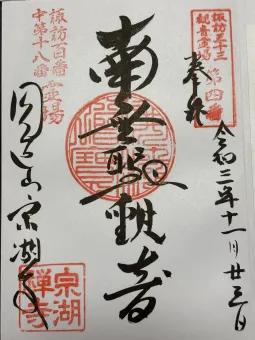 諏訪三十三
観音霊場 第四番
奉拝
令和三年十一月廿三日
南無聖観音
諏訪百番
中第十八番霊場
宗湖寺
宗湖
禅寺